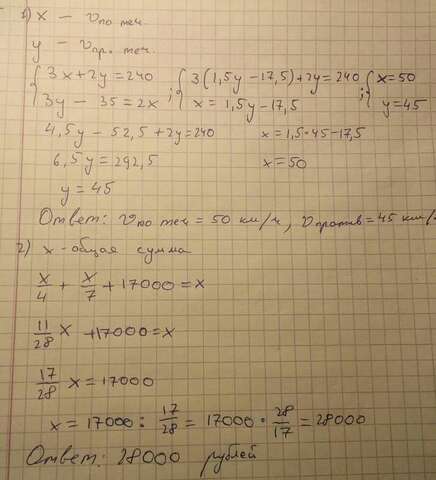 1) x – vпо теч.
y – vпр. теч.
{3x+2y=240 ; {3(1,5y–17,5)+2y=240 ; {x=50
{3y–35=2x ; {x=1,5y–17,5 ; {y=45
4,5y–52,5+2y=240 x=1,5·45–17,5
6,5y=292,5 x=50
y=45
Ответ: vпо теч=50 км/ч, vпротив=45 км/
2) x – общая сумма
x/4 + x/7 + 17000 = x
11/28 x +17000=x
17/28 x = 17000
x = 17000 : 17/28 = 17000 · 28/17 = 28000
Ответ: 28000 рублей